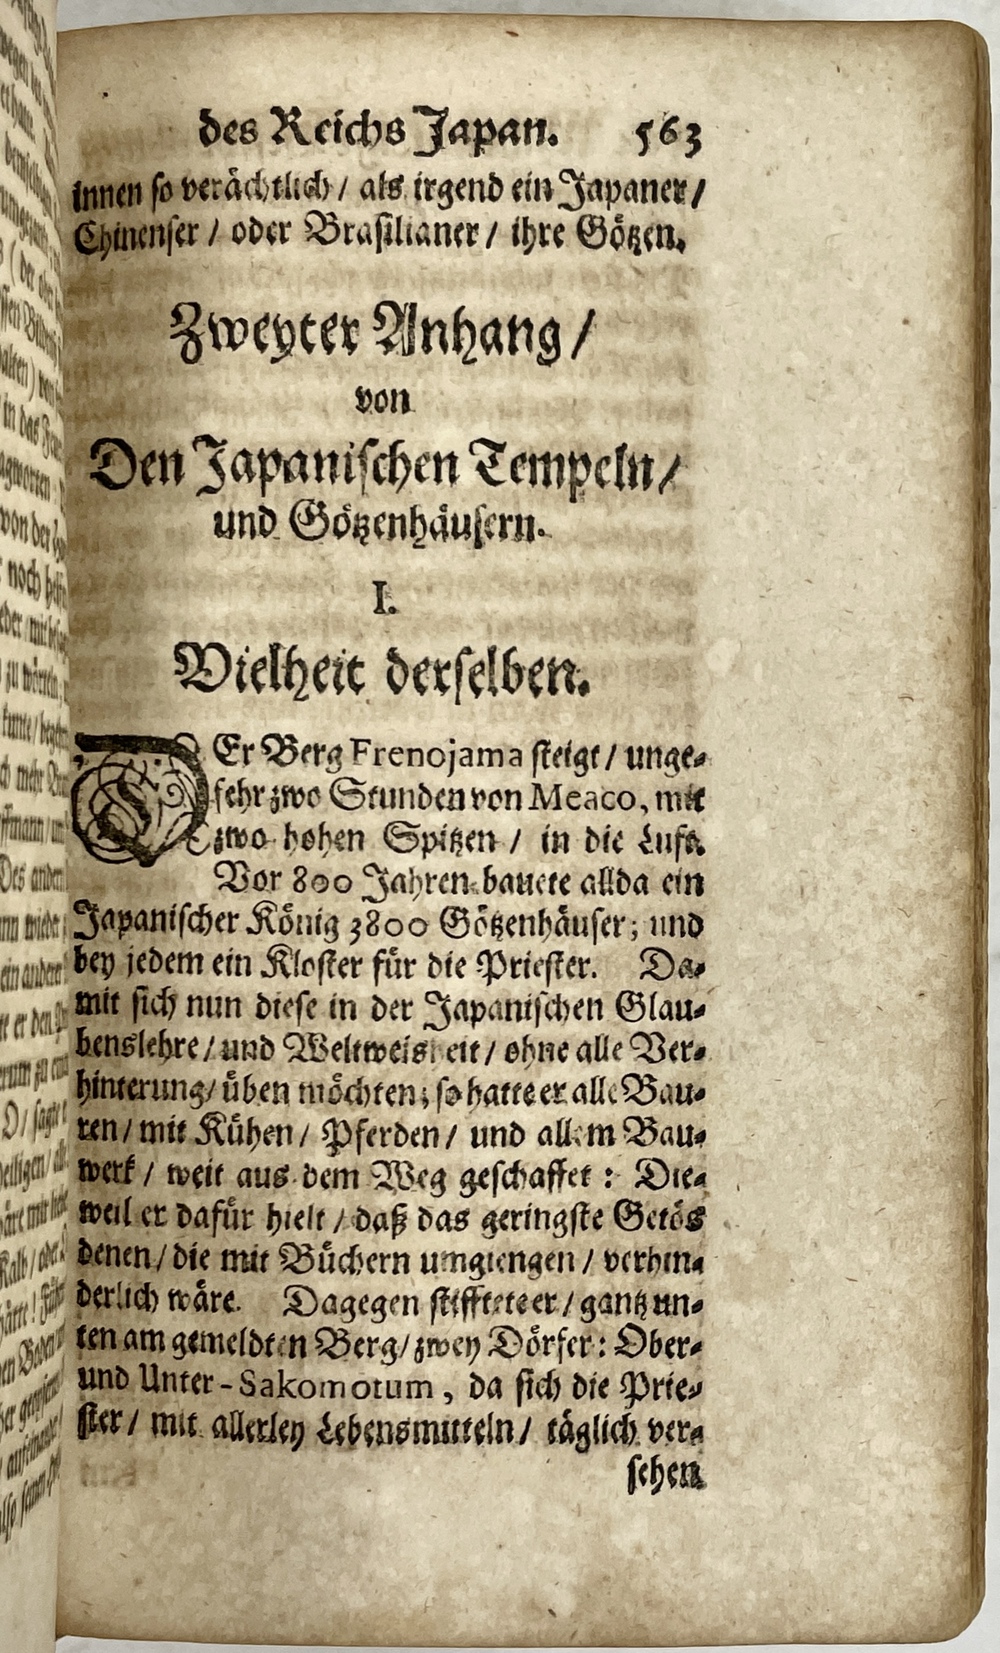 des Reichs Japan. 563
innen so verächtlich / als irgend ein Japaner /
Chinenser / oder Brasilianer / ihre Götzen.
Zweyter Anhang /
von
Den Japanischen Tempeln /
und Götzenhäusern.
I.
Vielheit derselben.
DEr Berg Frenojama steigt / unge-
fehr zwo Stunden von Meaco, mit
zwo hohen Spitzen / in die Luft.
Vor 800 Jahren bauete allda ein
Japanischer König 3800 Götzenhäuser; und
bey jedem ein Kloster für die Priester. Da-
mit sich nun diese in der Japanischen Glau-
benslehre / und Weltweisheit / ohne alle Ver-
hinterung / üben möchten; so hatte er alle Bau-
ren / mit Kühen / Pferden / und allem Bau-
werk / weit aus dem Weg geschaffet: Die-
weil er dafür hielt / daß das geringste Getös
denen / die mit Büchern umgiengen / verhin-
derlich wäre. Dagegen stifftete er / gantz un-
ten am gemeldten Berg / zwey Dörfer: Ober-
und Unter-Sakomotum, da sich die Prie-
ster / mit allerley Lebensmitteln / täglich ver-
sehen